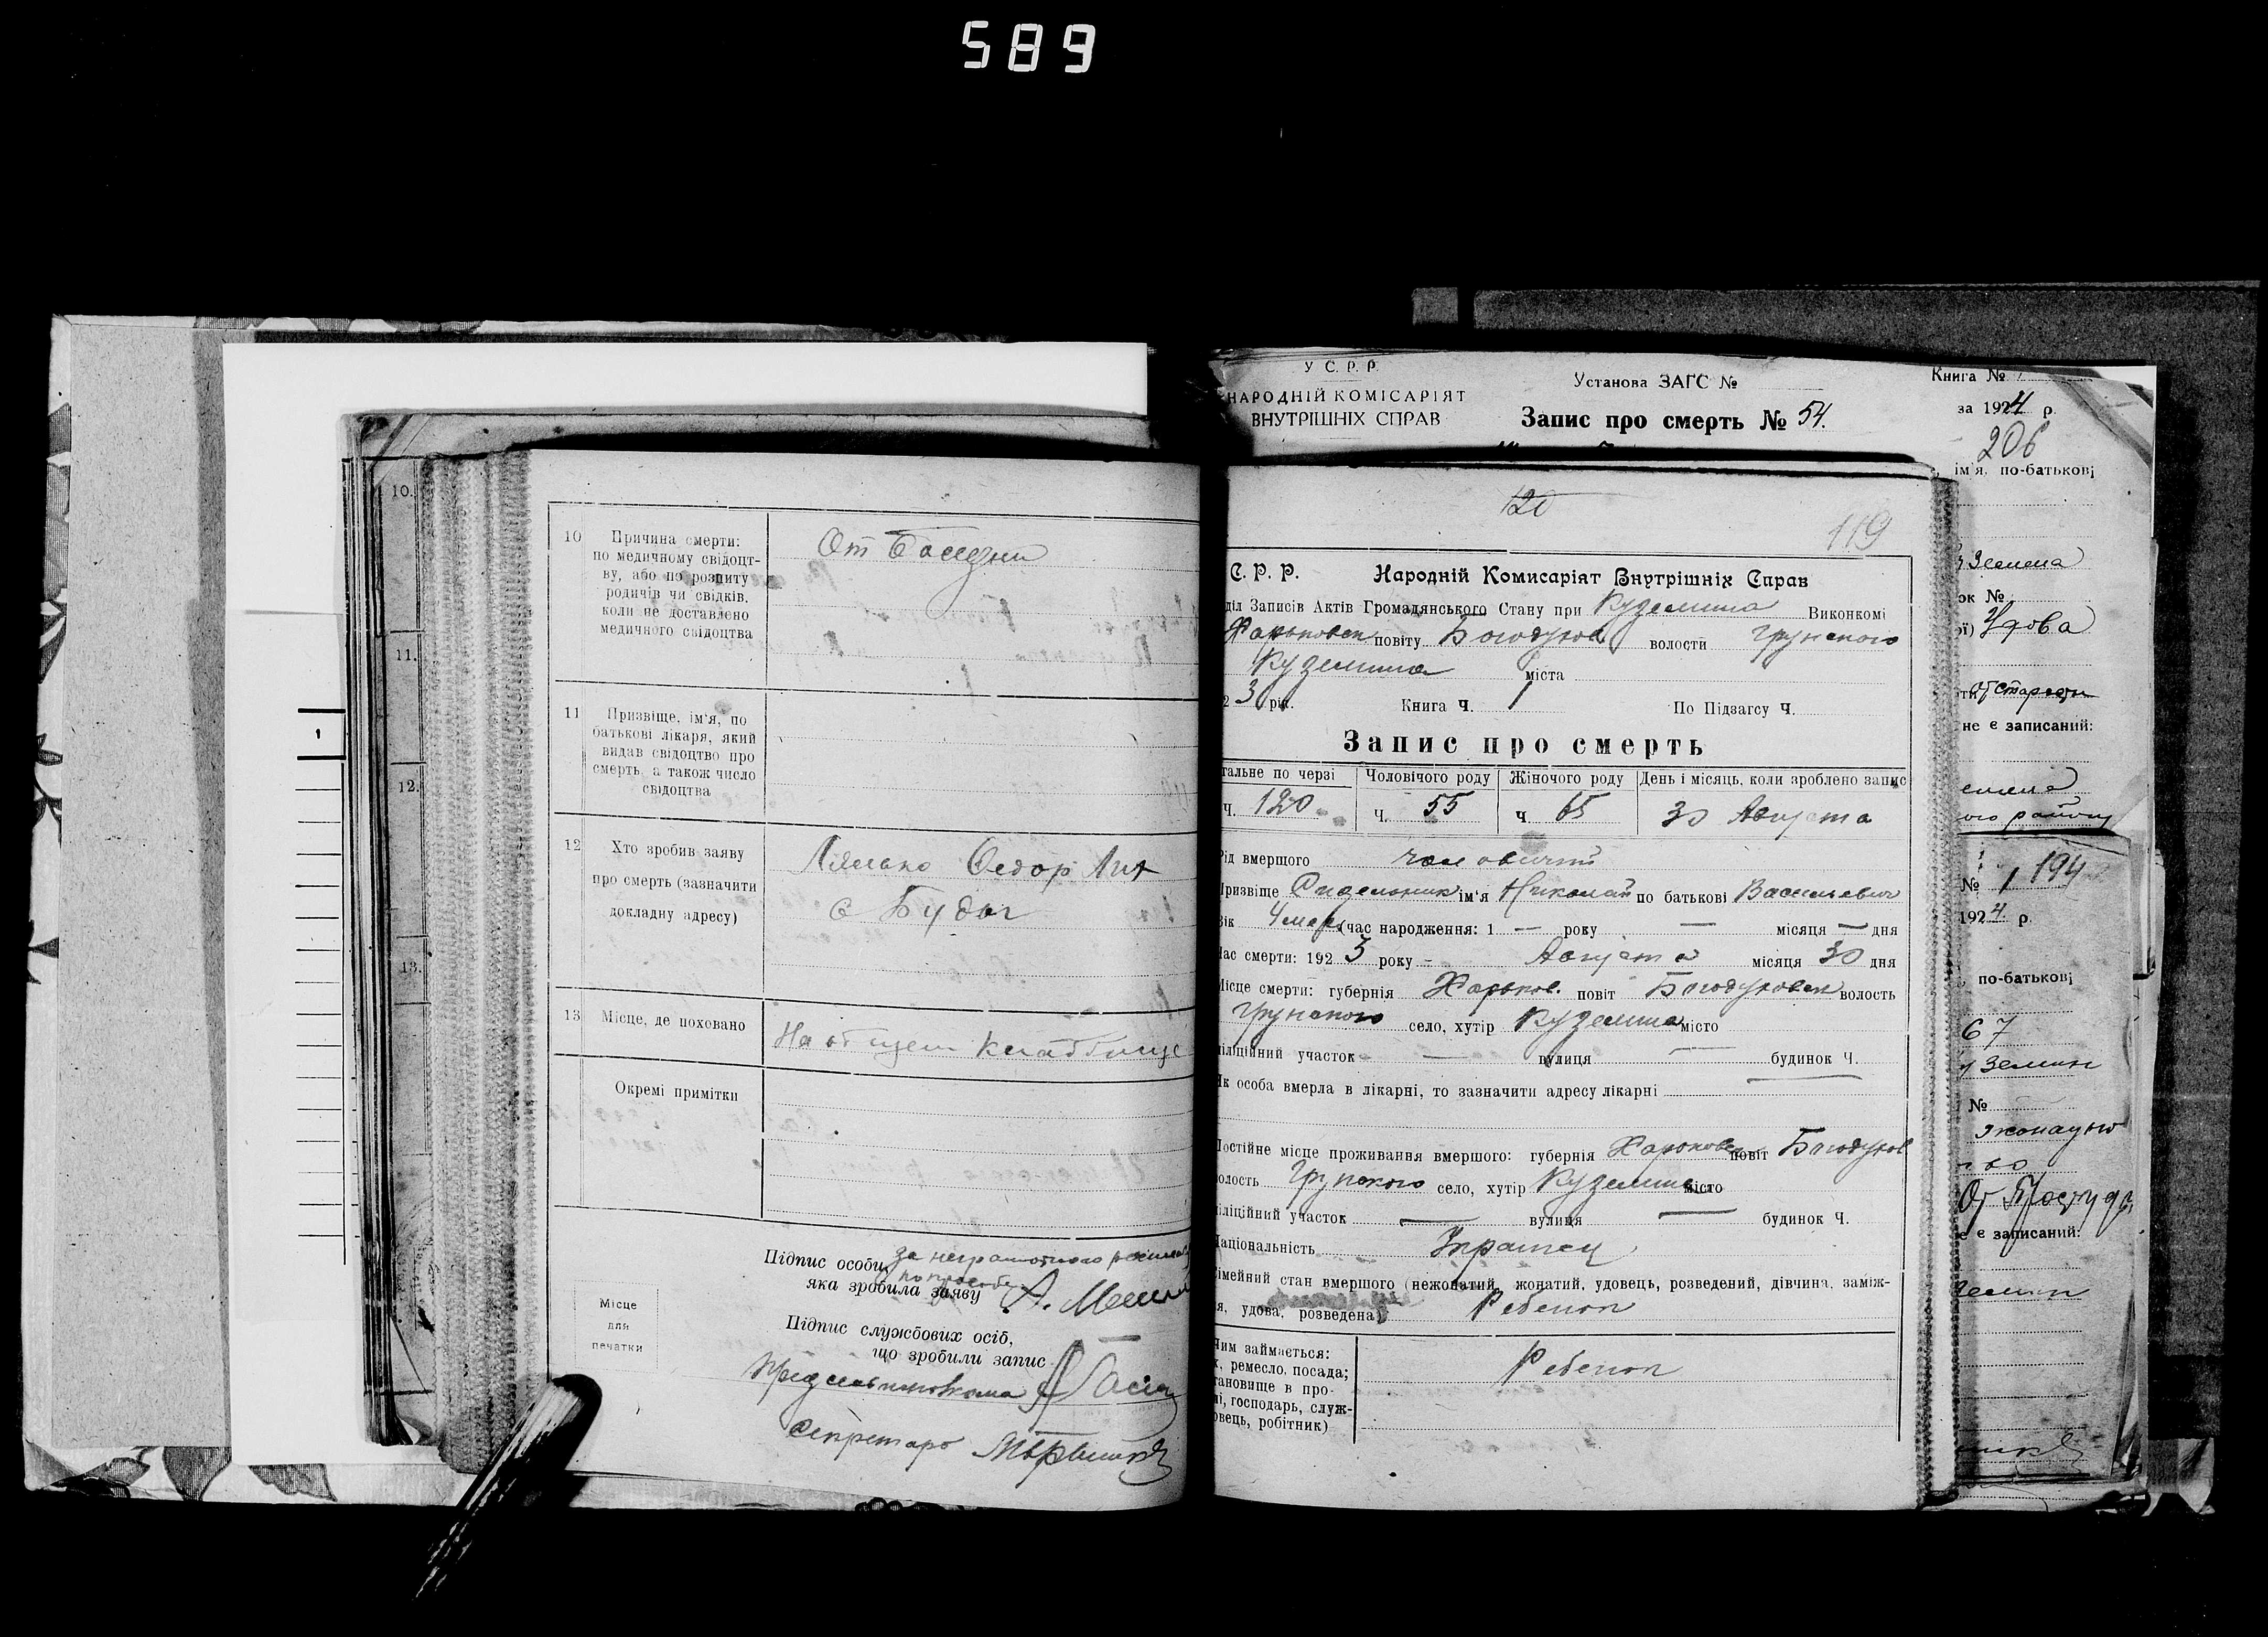 589
10.
11.
12.
13.
1
10 Причина смерти:
по медичному свідоцт-
ву, або по розпиту
родичів чи свідків,
коли не доставлено
медичного свідоцтва
От Болезни
11 Призвіще, ім'я, по
батькові лікаря, який
видав свідоцтво про
смерть, а також число
свідоцтва
12 Хто зробив заяву
про смерть (зазначити
докладну адресу)
Федор
с Буды
13 Місце, де поховано
На общем кладбище
Окремі примітки
Підпис особи, за неграмотного
яка зробила заяву по просьбе А.
Місце
для
печатки
Підпис службових осіб,
що зробили запис
Секретарь
У С. Р. Р.
НАРОДНІЙ КОМІСАРІЯТ
ВНУТРІШНІХ СПРАВ
Установа ЗАГС №
Запис про смерть № 54.
Книга №
за 1924 р.
206
ім'я, по-батькові
120
119
С. Р. Р. Народній Комисаріят Внутрішніх Справ
діл Записів Актів Громадянського Стану при Куземина Виконкомі
Харьковск повіту Богодухов волости Грунского
Куземина міста
2 3 рік. Книга Ч. 1 По Підзагсу Ч.
Запис про смерть
тальне по черзі Чоловічого роду Жіночого роду День і місяць, коли зроблено запис
Ч. 120 Ч. 55 Ч 65 30 Августа
Рід вмершого
Призвіще Сидельник ім'я Николай по батькові Васильевич
Вік 4 (час народження: 1 — року — місяця — дня
Час смерти: 1923 року - Августа місяця 30 дня
Місце смерти: губернія Харьков. повіт Богодуховск волость
Грунского село, хутір Куземина місто
міліційний участок — вулиця — будинок Ч.
Як особа вмерла в лікарні, то зазначити адресу лікарні
Постійне місце проживання вмершого: губернія Харьковск повіт Богодухов
волость Грунского село, хутір Куземина місто
міліційний участок — вулиця — будинок Ч.
Національність Украинец
Сімейний стан вмершого (нежонатий, жонатий, удовець, розведений, дівчина, заміж-
я, удова, розведена) Ребенок
Чим займається:
к, ремесло, посада;
тановище в про-
лі, господарь, служ-
овець, робітник)
Ребенок
ок №
Удова
от старости
не є записаний:
ого району
№ 1 194
1924 р
по-батькові
67
№
От Простуды
е є записаний: